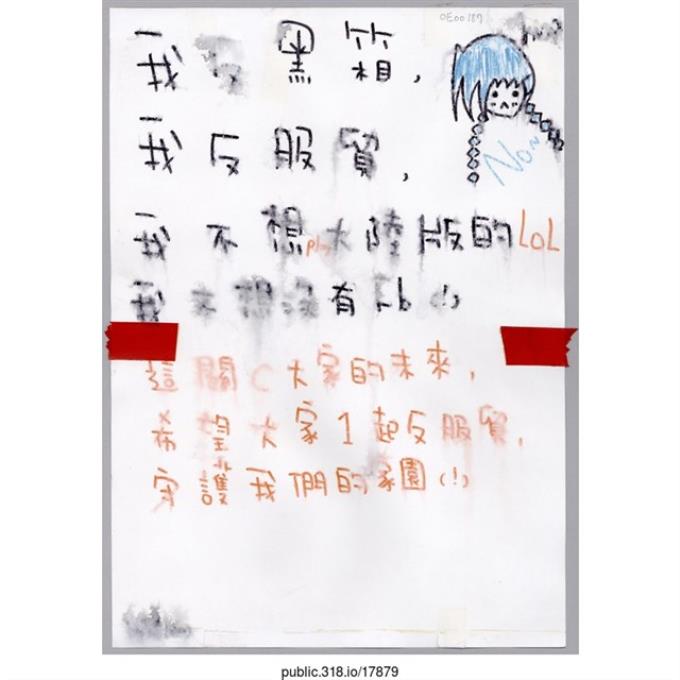 0E00187
我 黑箱，
我反服貿，
No~
我不想play大陸版的LOL
我不想沒有Fb (!)
這關C大家的未來，
希望大家1起反服貿，
守護我們的家園 (!)
public.318.io/17879